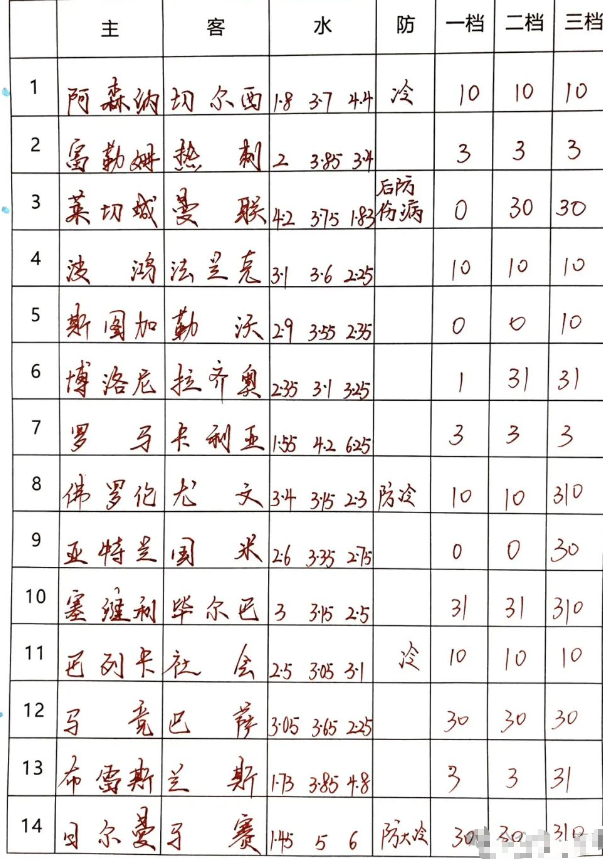 主 客 水 防 一档 二档 三档
1 阿森纳 切尔西 1.8 3.7 4.4 冷 10 10 10
2 富勒姆 热刺 2 3.85 3.4 3 3 3
3 莱切城 曼联 4.2 3.75 1.83 后防伤病 0 30 30
4 波鸿 法兰克 3.1 3.6 2.25 10 10 10
5 斯图加 勒沃 2.9 3.55 2.35 0 0 10
6 博洛尼 拉齐奥 2.35 3.1 3.25 1 31 31
7 罗马 卡利亚 1.55 4.2 6.25 3 3 3
8 佛罗伦 尤文 3.4 3.15 2.3 防冷 10 10 310
9 亚特兰 国米 2.6 3.35 2.75 0 0 30
10 塞维利 毕尔巴 3 3.15 2.5 31 31 310
11 巴列卡 社会 2.5 3.05 3.1 冷 10 10 10
12 马竞 巴萨 3.05 3.65 2.25 30 30 30
13 布雷斯 兰斯 1.73 3.85 4.8 3 3 31
14 日尔曼 马赛 1.45 5 6 防大冷 30 30 310